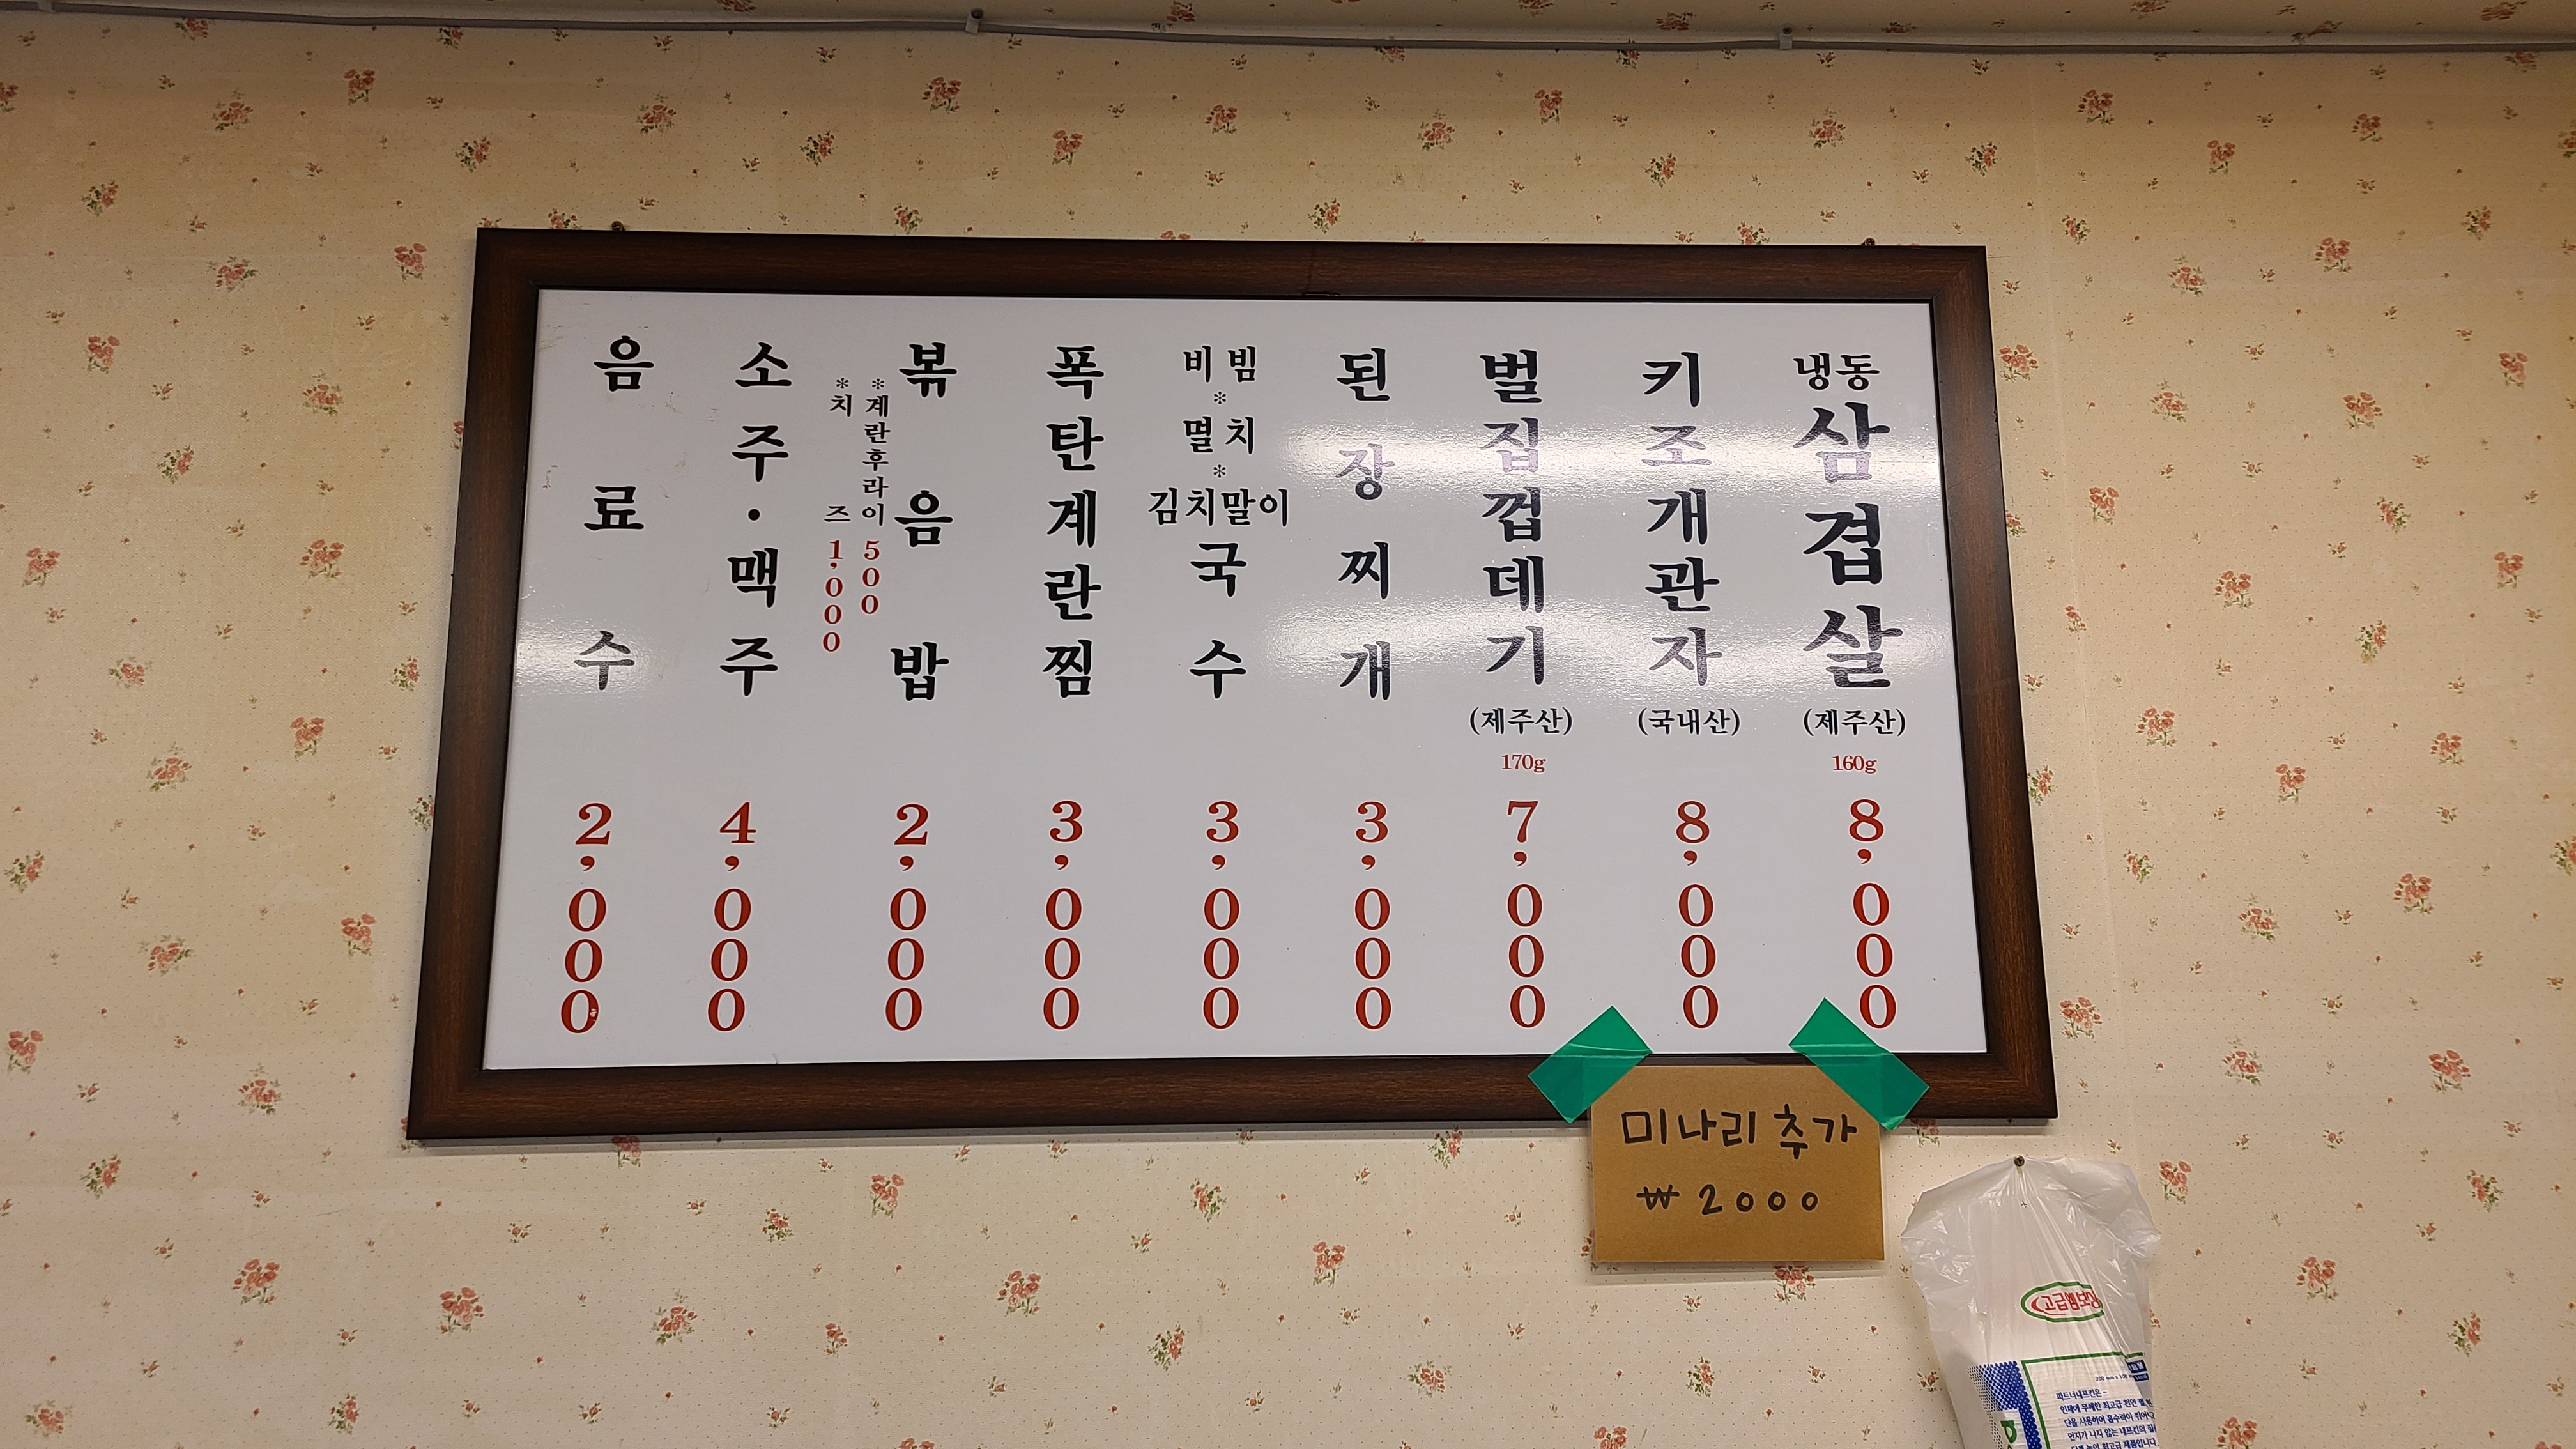 냉동삼겹살
(제주산)
160g
8,000
키조개관자
(국내산)
8,000
벌집껍데기
(제주산)
170g
7,000
된장찌개
3,000
비빔
*
멸치
*
김치말이
국수
3,000
폭탄계란찜
3,000
볶음밥
*계란후라이 500
*치즈 1,000
2,000
소주·맥주
4,000
음료수
2,000
미나리 추가
₩2000
파트너내프킨은-